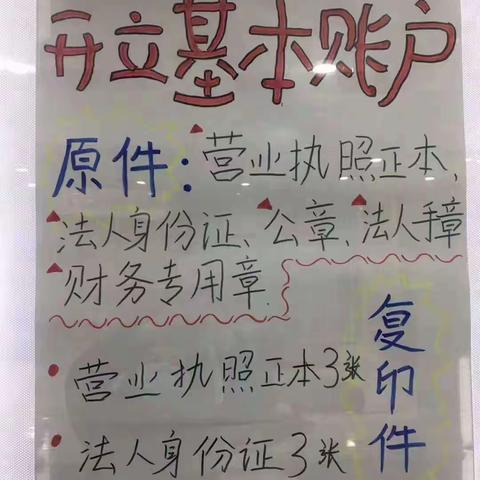 开立基本账户
原件:营业执照正本、
法人身份证、公章、法人手章
财务专用章
复印件
营业执照正本3张
法人身份证3张